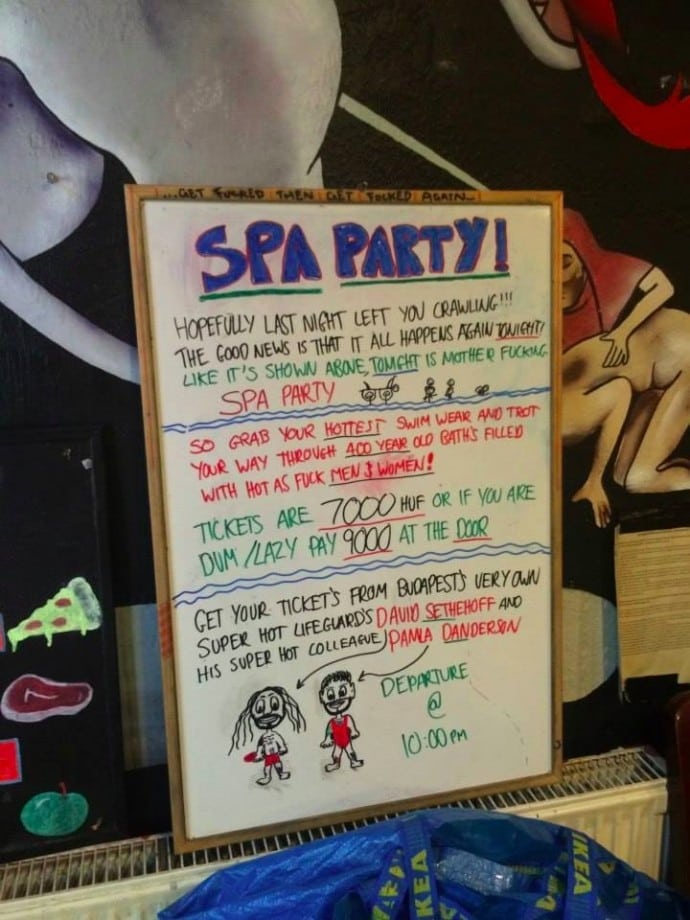 ...GET FUCKED THEN GET FUCKED AGAIN...
SPA PARTY!
HOPEFULLY LAST NIGHT LEFT YOU CRAWLING!!!
THE GOOD NEWS IS THAT IT ALL HAPPENS AGAIN TONIGHT!
LIKE IT'S SHOWN ABOVE, TONIGHT IS MOTHER FUCKING
SPA PARTY
SO GRAB YOUR HOTTEST SWIM WEAR AND TROT
YOUR WAY THROUGH 400 YEAR OLD BATH'S FILLED
WITH HOT AS FUCK MEN & WOMEN!
TICKETS ARE 7000 HUF OR IF YOU ARE
DUM/LAZY PAY 9000 AT THE DOOR
GET YOUR TICKET'S FROM BUDAPEST'S VERY OWN
SUPER HOT LIFEGUARD'S DAVID SETHEHOFF AND
HIS SUPER HOT COLLEAGUE PAMLA DANDERSON
DEPARTURE
@
10:00PM
IKEA
IKEA